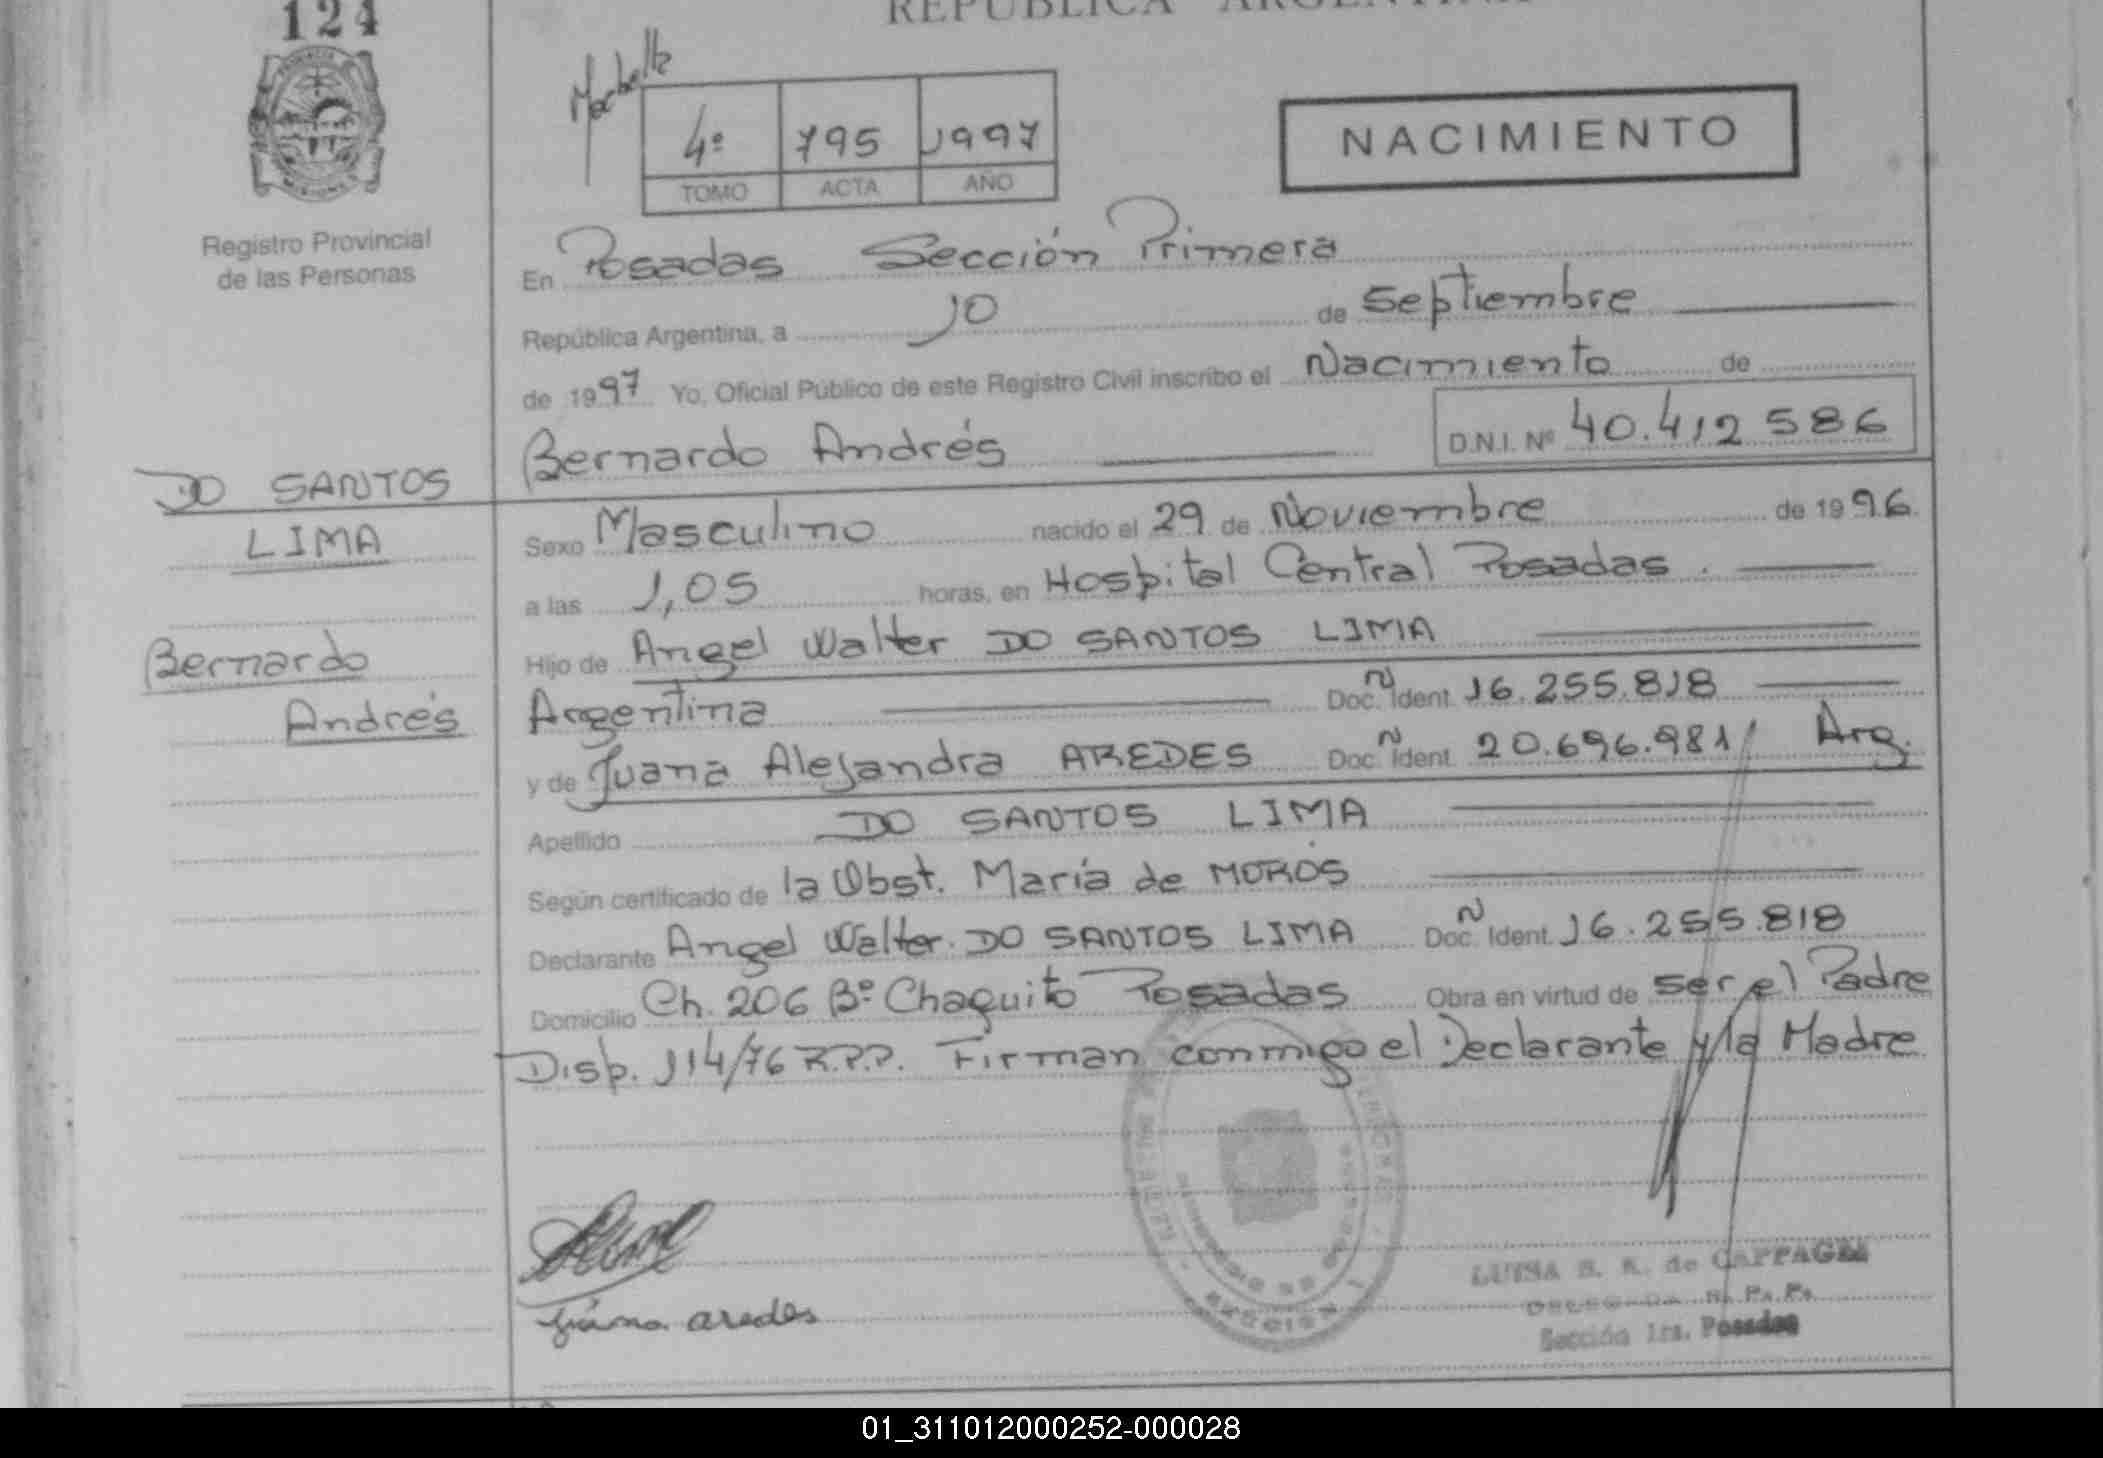 124
REPÚBLICA ARGENTINA
4º 795 1997
TOMO ACTA AÑO
NACIMIENTO
Registro Provincial
de las Personas
En Posadas Sección Primera
República Argentina, a 10 de Septiembre
de 1997 Yo, Oficial Público de este Registro Civil inscribo el Nacimiento de
Bernardo Andrés D.N.I. Nº 40.412 586
DO SANTOS
LIMA
Bernardo
Andrés
Sexo Masculino nacido el 29 de Noviembre de 1996.
a las 1,05 horas, en Hospital Central Posadas.
Hijo de Angel Walter DO SANTOS LIMA
Argentina Doc. N Ident. 16.255.818
y de Juana Alejandra AREDES Doc. N Ident. 20.696.981/ Arg.
Apellido DO SANTOS LIMA
Según certificado de la Obst. María de MOROS
Declarante Angel Walter DO SANTOS LIMA Doc. N Ident. 16.255.818
Domicilio Ch. 206 Bº Chaquito Posadas Obra en virtud de ser el Padre
Disp. 114/76 R.P.P. Firman conmigo el Declarante y la Madre
juana aredes
LUISA S. K. de
R. P. P.
Sección 1ra. Posadas
01_311012000252-000028